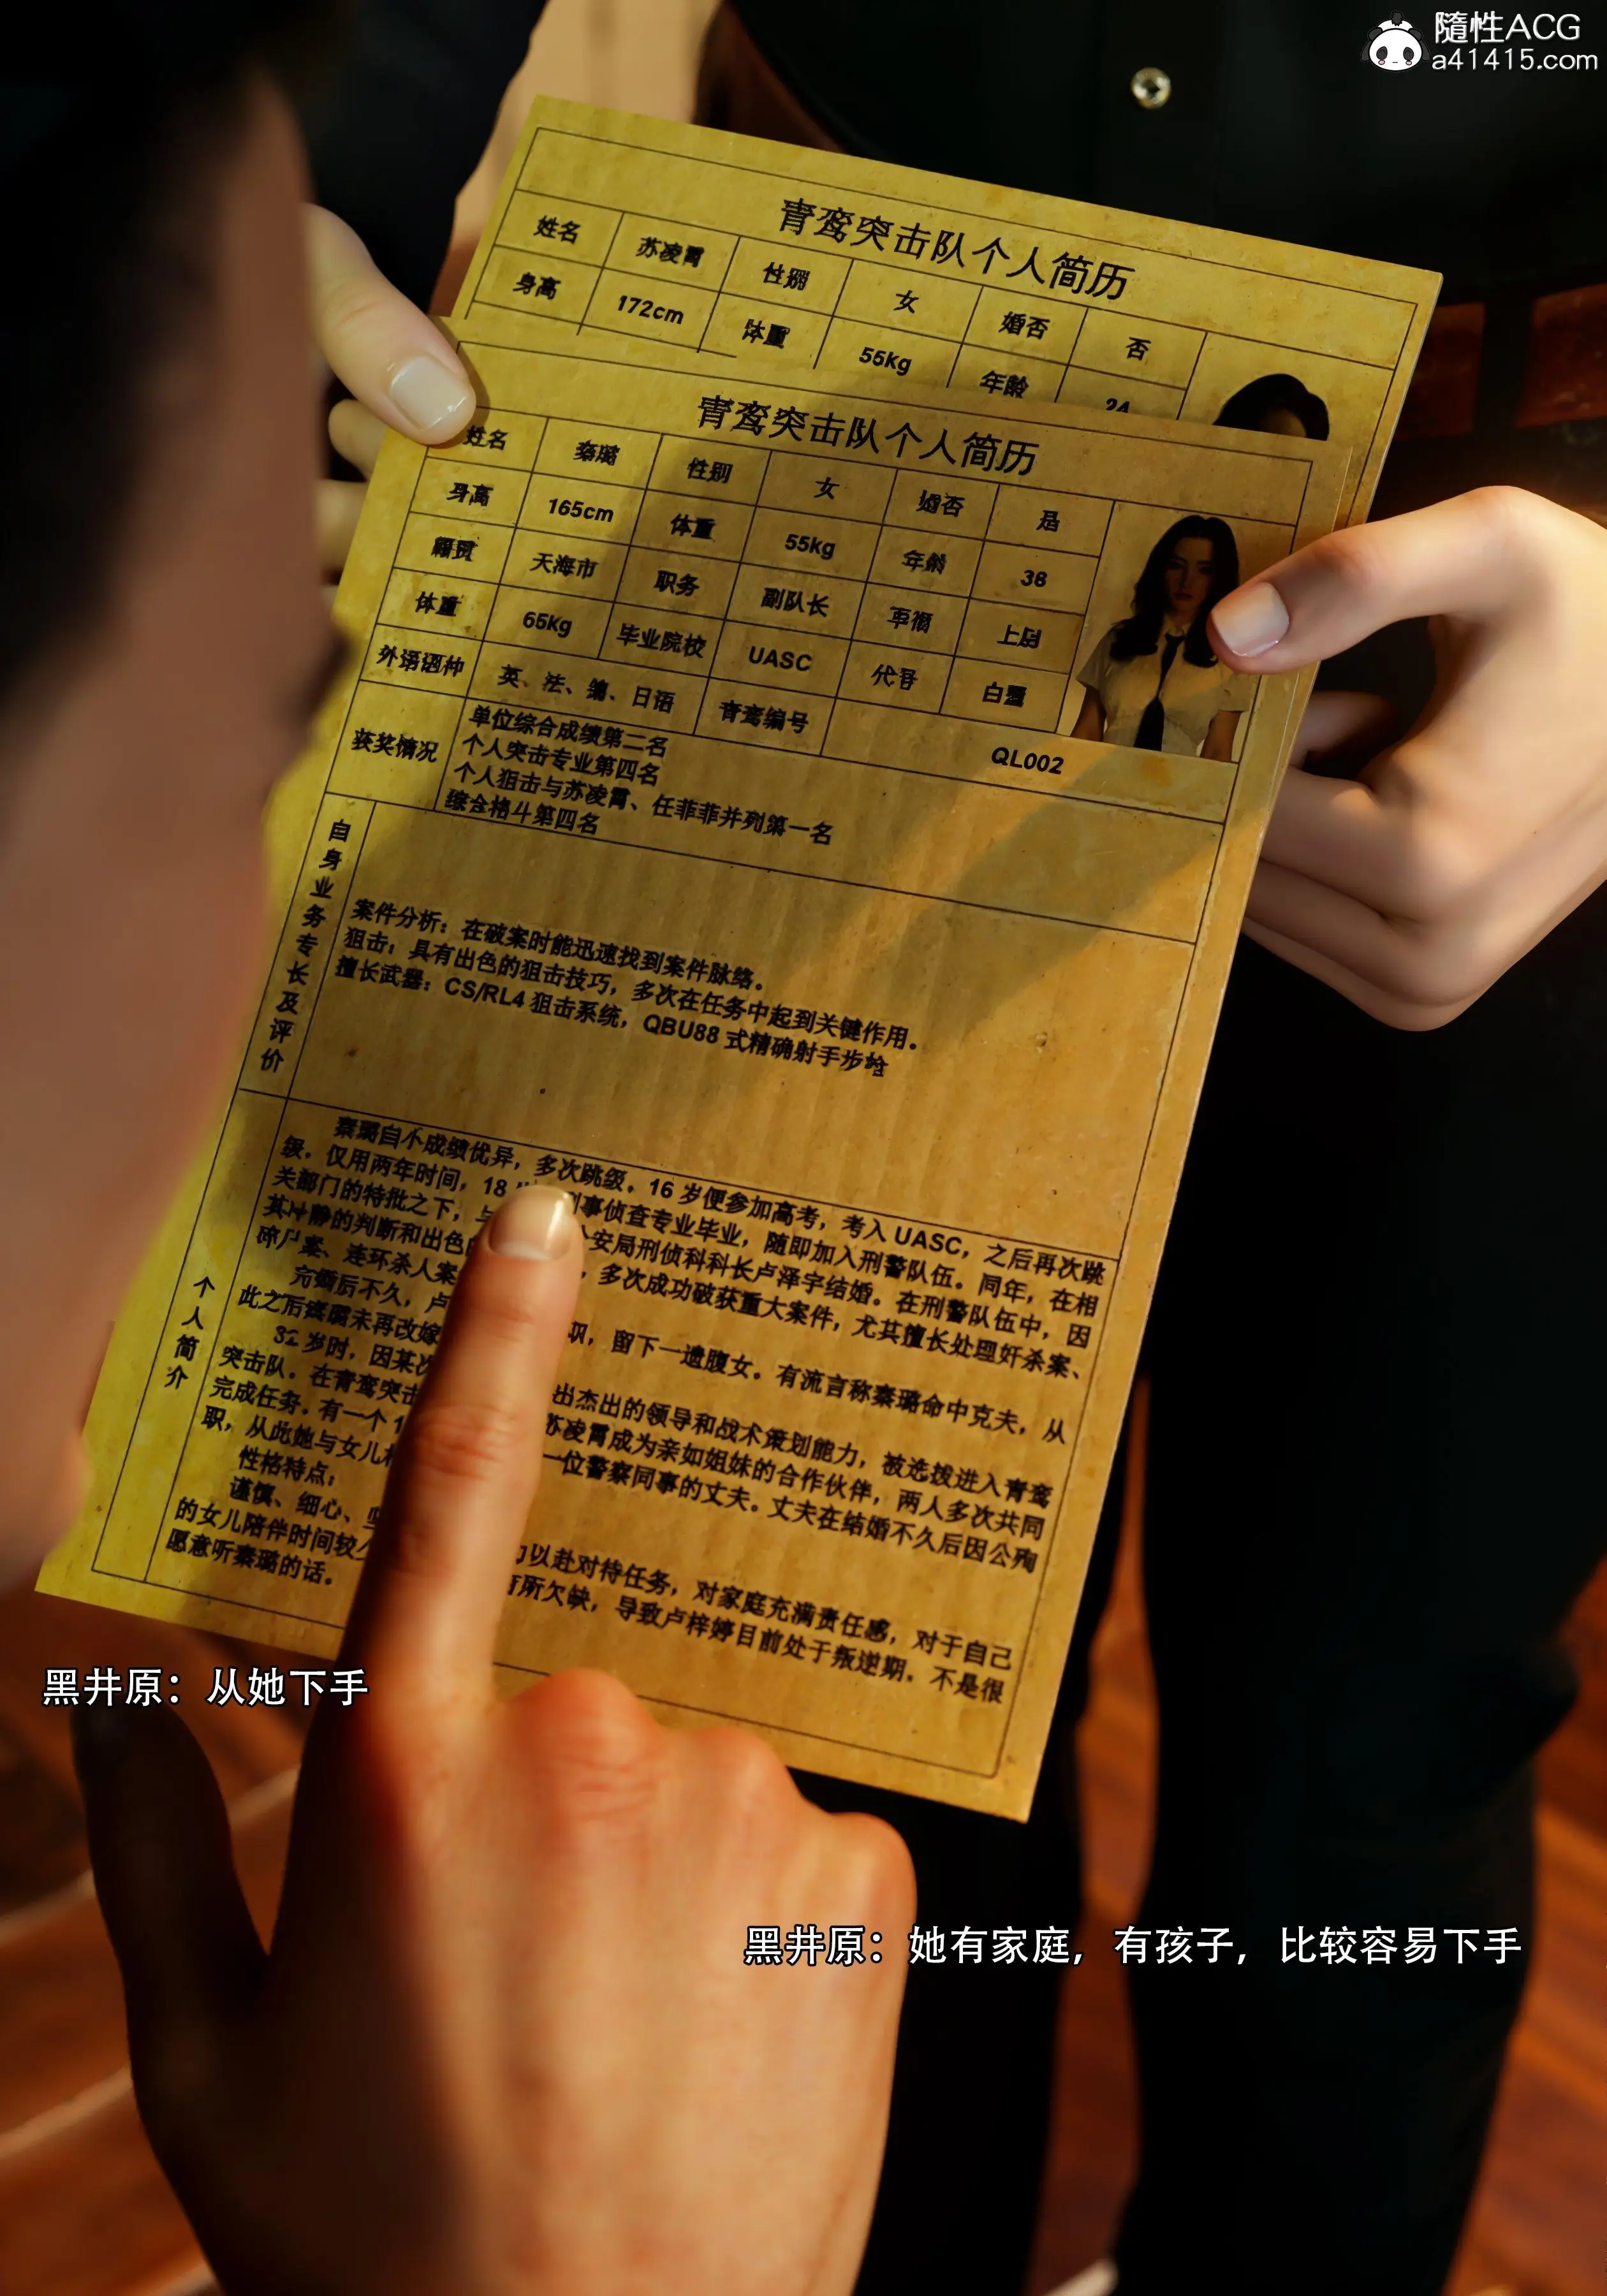 隨性ACG
a41415.com
青鸾突击队个人简历
姓名 苏凌霄 性别 女 婚否 否
身高 172cm 体重 55Kg 年龄 24
青鸾突击队个人简历
姓名 秦璐 性别 女 婚否 是
身高 165cm 体重 55kg 年龄 38
籍贯 天海市 职务 副队长 军衔
体重 65Kg 毕业院校 UASC 代号
外语语种 英、法、德、日语 青鸾编号 QL002
获奖情况
单位综合成绩第二名
个人突击专业第四名
个人狙击与苏凌霄、任菲菲并列第一名
综合格斗第四名
自身业务专长及评价
案件分析：在破案时能迅速找到案件脉络。
狙击：具有出色的狙击技巧，多次在任务中起到关键作用。
擅长武器：CS/RL4 狙击系统，QBU88 式精确射手步枪
个人简介
秦璐自小成绩优异，多次跳级。16 岁便参加高考，考入 UASC，之后再次跳
级，仅用两年时间，18 刑事侦查专业毕业，随即加入刑警队伍。同年，在相
关部门的特批之下，与 安局刑侦科科长卢泽宇结婚。在刑警队伍中，因
其冷静的判断和出色 ，多次成功破获重大案件，尤其擅长处理奸杀案、
碎尸案、连环杀人案
完婚后不久，卢 职，留下一遗腹女。有流言称秦璐命中克夫，从
此之后秦璐未再改嫁
32 岁时，因某次 出杰出的领导和战术策划能力，被选拨进入青鸾
突击队。在青鸾突击 苏凌霄成为亲如姐妹的合作伙伴，两人多次共同
完成任务。有一个 1 一位警察同事的丈夫。丈夫在结婚不久后因公殉
职，从此她与女儿
性格特点：
谨慎、细心、 以赴对待任务，对家庭充满责任感，对于自己
的女儿陪伴时间较 有所欠缺，导致卢梓婷目前处于叛逆期。不是很
愿意听秦璐的话。
黑井原：从她下手
黑井原：她有家庭，有孩子，比较容易下手